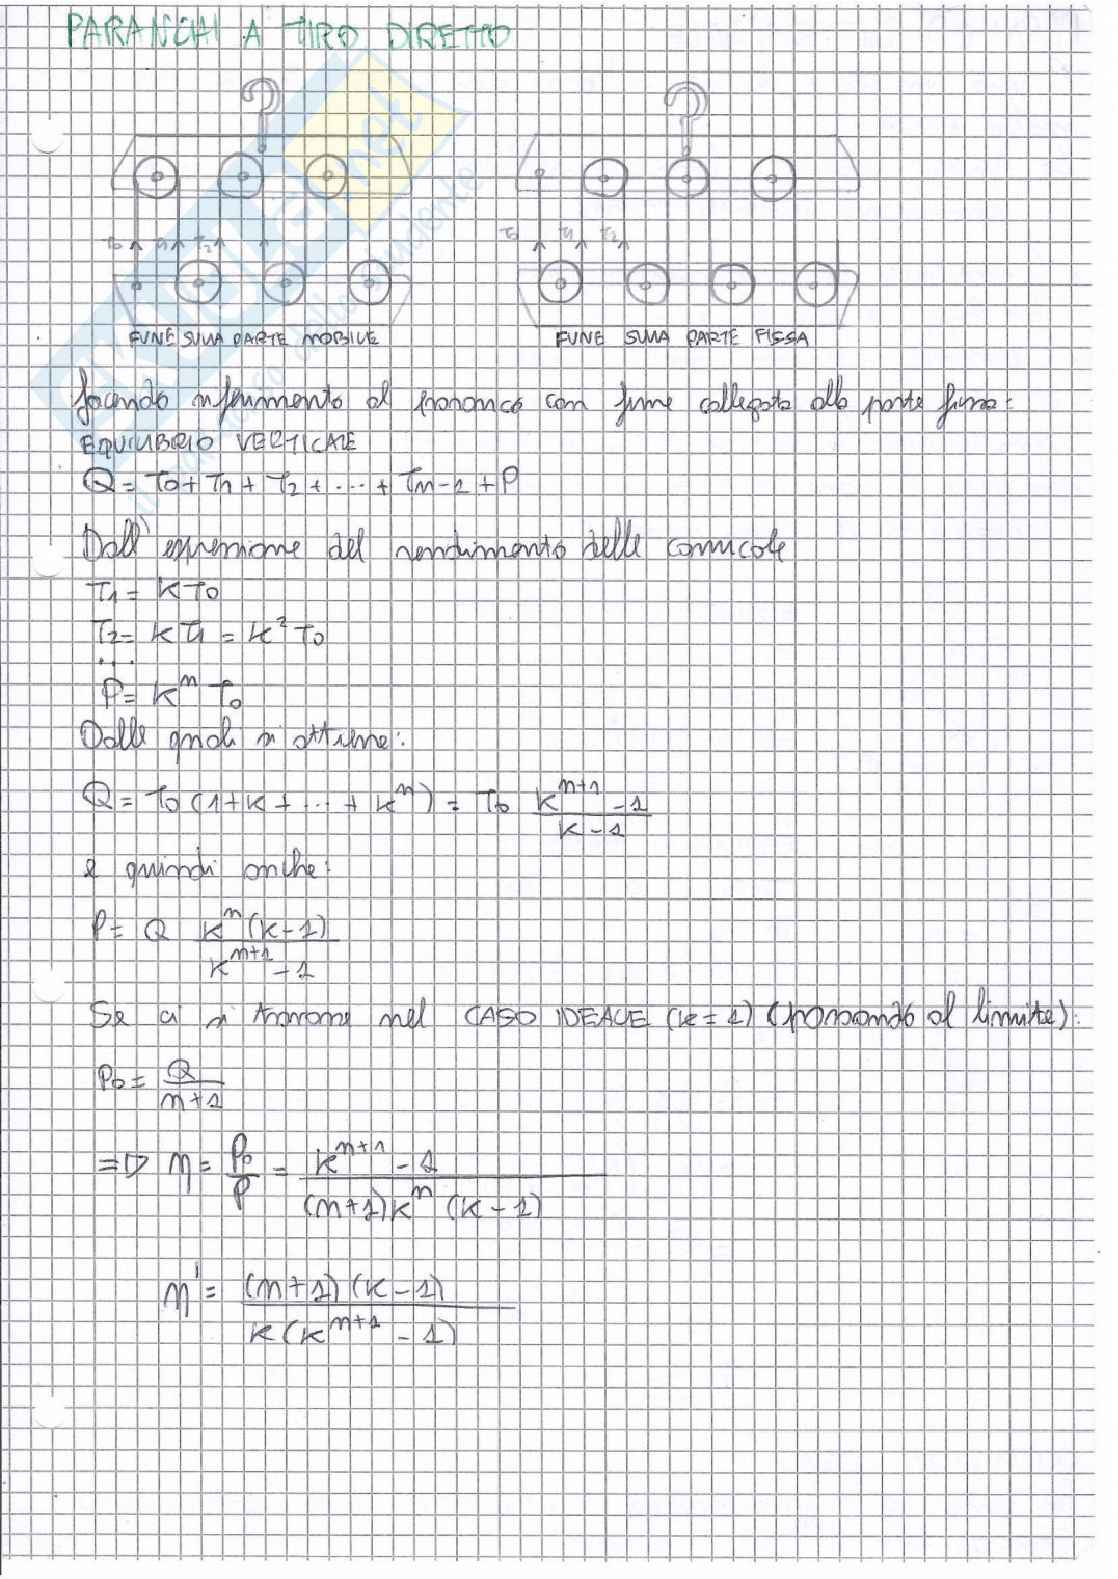 PARANCHI A TIRO DIRETTO
T0 T1 T2
T0 T1 T2
FUNE SULLA PARTE MOBILE
FUNE SULLA PARTE FISSA
facendo riferimento al paranco con fune collegata alla parte fissa:
EQUILIBRIO VERTICALE
Q = T0 + T1 + T2 + ... + Tn-1 + P
Dall'espressione del rendimento delle carrucole
T1 = K T0
T2 = K T1 = K² T0
...
P = K^n T0
Dalle quali si ottiene:
Q = T0 (1 + K + ... + K^n) = T0 (K^{n+1} - 1)/(K - 1)
e quindi anche:
P = Q K^n (K - 1)/(K^{n+1} - 1)
Se ci si trovasse nel CASO IDEALE (K = 1) (passando al limite):
P0 = Q/(n+1)
=> η = P0/P = (K^{n+1} - 1)/((n+1) K^n (K - 1))
η' = (n+1)(K - 1)/(K (K^{n+1} - 1))